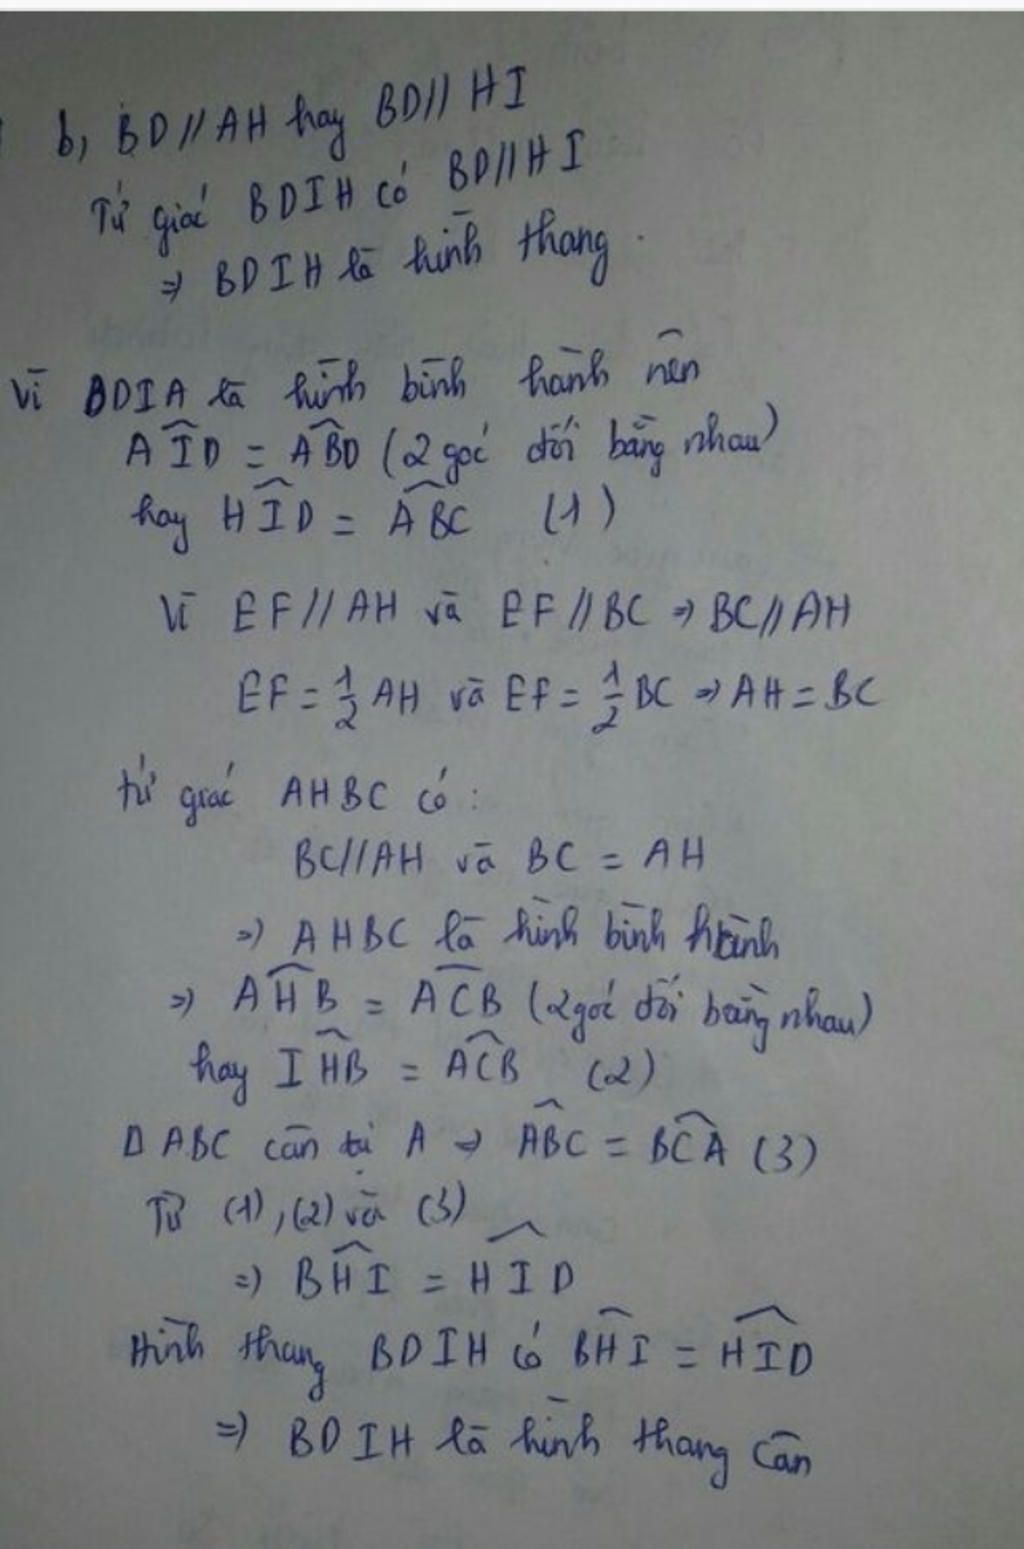 b, BD//AH hay BD//HI
Tứ giác BDIH có BD//HI
=> BDIH là hình thang.
Vì BDIA là hình bình hành nên
AÎD = AB̂D (2 góc đối bằng nhau)
hay HÎD = AB̂C (1)
Vì EF//AH và EF//BC => BC//AH
EF = 1/2 AH và EF = 1/2 BC => AH = BC
tứ giác AHBC có:
BC//AH và BC = AH
=> AHBC là hình bình hành
=> AĤB = AĈB (2 góc đối bằng nhau)
hay IĤB = AĈB (2)
Δ ABC cân tại A => AB̂C = BĈA (3)
Từ (1), (2) và (3)
=> BĤI = HÎD
Hình thang BDIH có BĤI = HÎD
=> BDIH là hình thang cân